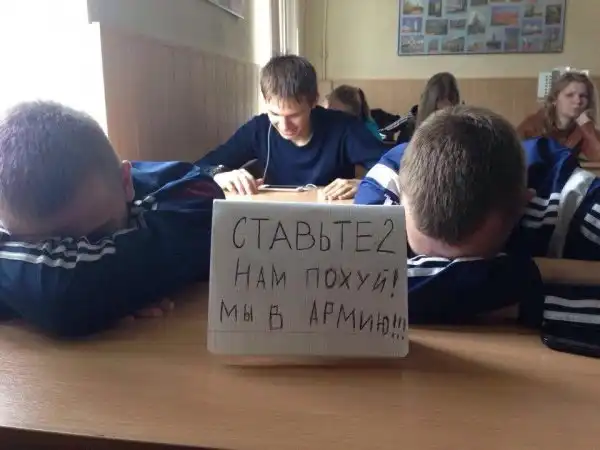 СТАВЬТЕ 2
НАМ ПОХУЙ!
МЫ В АРМИЮ!!!